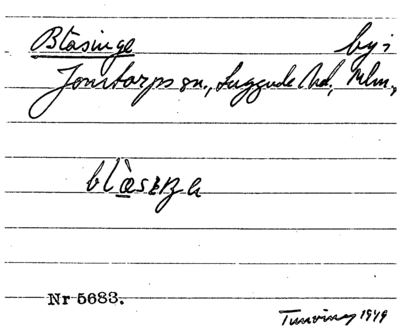 Blåsinge by;
Jonstorps sn., Luggude hd, Mlm.,
Nr 5683.
1949